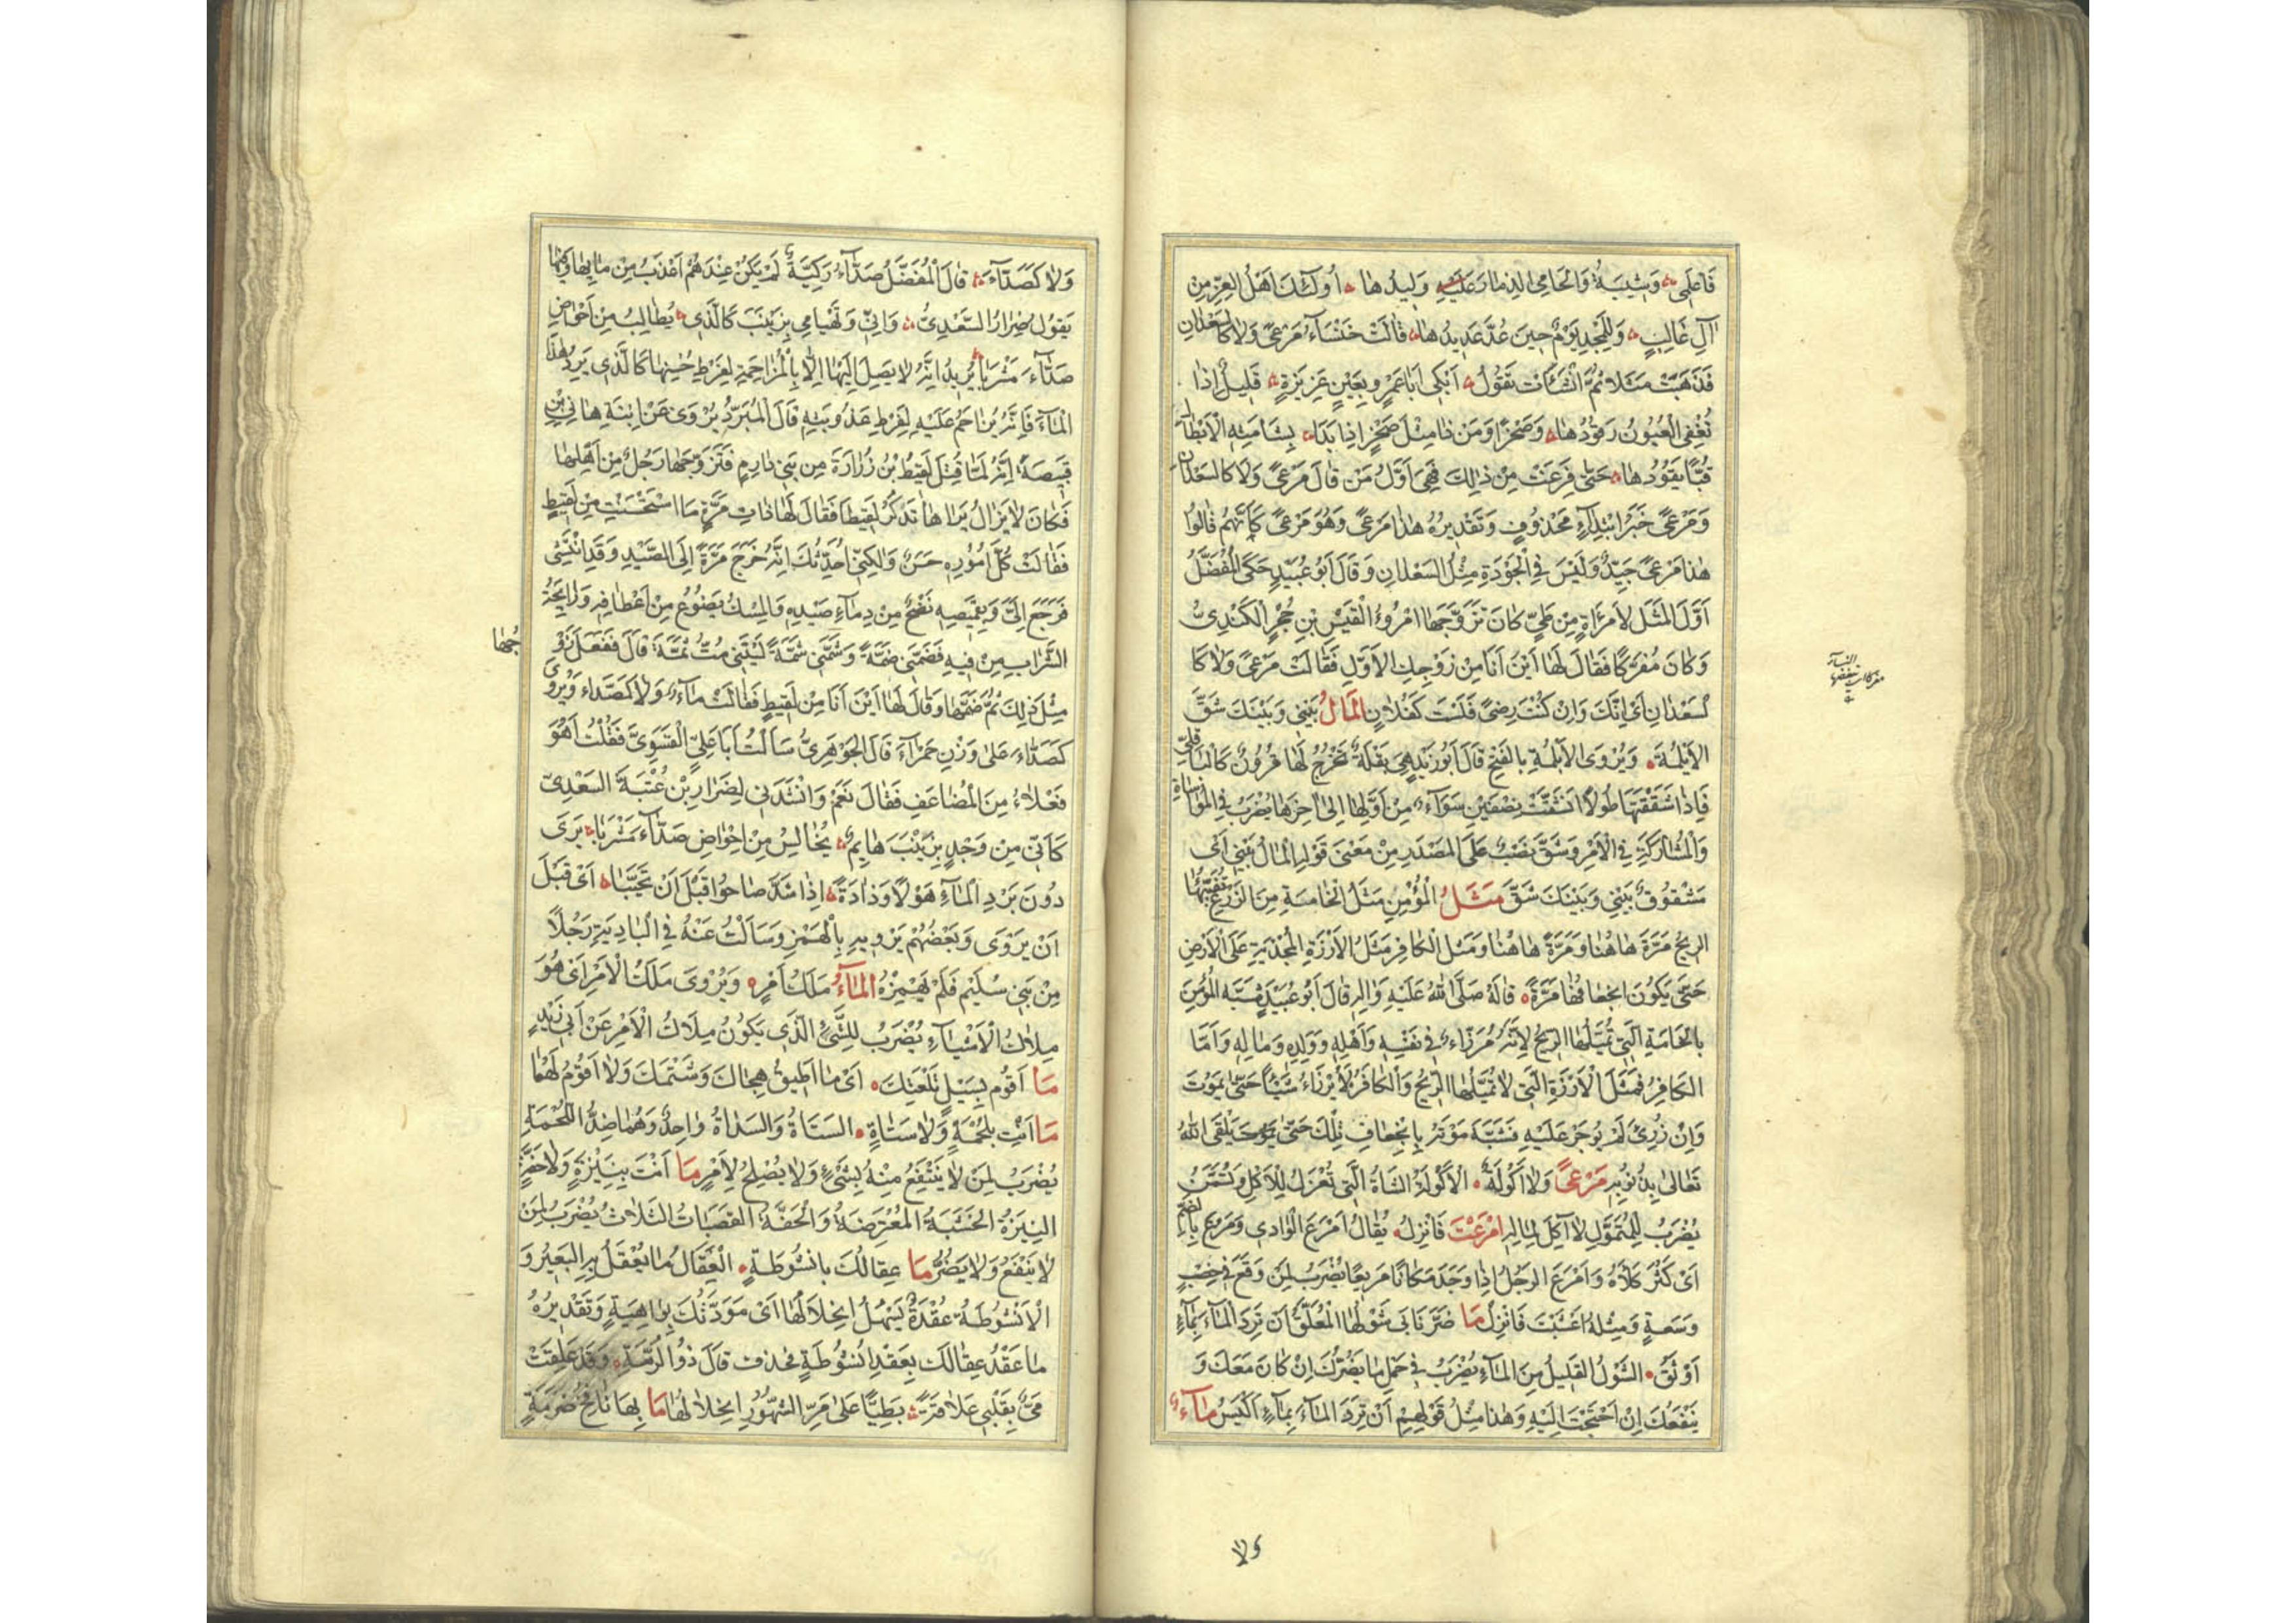 فَاعلَمى وَشَيبَةُ وَالحَامِى الذِمَارَ عَلَيْهِ وَلِيدُهَا اُولَئِكَ اَهْلُ العِزِّ مِنْ
آلِ غَالِبٍ وَلِلْمَجْدِ يَوْمٌ حِينَ عُدَّ عَدِيدُهَا قَالَتْ خَنْسَاءُ مَرْعىً وَلَا كَالسَعْدَانِ
فَذَهَبَتْ مَثَلًا ثُمَّ اَنْشَأَتْ تَقُولُ اَبْكى اَبَا عَمْرٍو بِعَيْنٍ غَزِيزَةٍ قَلِيلٌ اِذَا
تُغْفِى العُيُونُ رَقُودُهَا وَصَخْرًا وَمَنْ ذَا مِثْلُ صَخْرٍ اِذَا بَدَا بِسَاهِيَتِهِ الْاَبْطَالَ
قُبًّا يَقُودُهَا حَتَّى فَرِغَتْ مِنْ ذٰلِكَ فَهِىَ اَوَّلُ مَنْ قَالَ مَرْعىً وَلَا كَالسَعْدَانِ
وَمَرْعىً خَبَرُ ابْتِدَاءٍ مَحْذُوفٍ وَتَقْدِيرُهُ هٰذَا مَرْعىً وَهُوَ مَرْعىً كَاَنَّهُمْ قَالُوا
هٰذَا مَرْعىً جَيِّدٌ وَلَيْسَ فِى الْجَوْدَةِ مِثْلُ السَعْدَانِ وَقَالَ اَبُو عُبَيْدٍ حَكَى الْمُفَضَّلُ
اَوَّلُ الْمَثَلِ لِامْرَأَةٍ مِنْ طَيٍّ كَانَ تَزَوَّجَهَا امْرُؤُ الْقَيْسِ بْنِ حُجْرٍ الْكَنْدِىُّ
وَكَانَ مُفَرَّكًا فَقَالَ لَهَا اَيْنَ اَنَا مِنْ زَوْجِكِ الاَوَّلِ فَقَالَتْ مَرْعىً وَلَا كَا
لسَعْدَانِ اَىْ اِنَّكَ وَاِنْ كُنْتَ رِضىً فَلَسْتَ كَفُلَانٍ اَلْمَالُ بَيْنِى وَبَيْنَكَ شَقَّ
الاَبْلُمَةِ وَيُرْوَى الاَبْلَمَةِ بِالفَتْحِ قَالَ اَبُو زَيْدٍ هِىَ بَقْلَةٌ تَخْرُجُ لَهَا قُرُونٌ كَالْبَاقِلَّى
فَاِذَا شَقَقْتَهَا طُولًا انْشَقَّتْ نِصْفَيْنِ سَوَاءً مِنْ اَوَّلِهَا اِلَى اٰخِرِهَا يُضْرَبُ فِى الْمُوَاسَاةِ
وَالْمُشَارَكَةِ فِى الْاَمْرِ وَشَقَّ نَصْبٌ عَلَى الْمَصْدَرِ مِنْ مَعْنَى قَوْلِهِ الْمَالُ بَيْنِى اَىْ
مَشْقُوقٌ بَيْنِى وَبَيْنَكَ شَقَّ مَثَلُ الْمُؤْمِنِ مَثَلُ الْخَامَةِ مِنَ الزَرْعِ تُفَيِّئُهَا
الرِيحُ مَرَّةً هَاهُنَا وَمَرَّةً هَاهُنَا وَمَثَلُ الْكَافِرِ مَثَلُ الْاَرْزَةِ الْمُجْذِيَةِ عَلَى الْاَرْضِ
حَتَّى يَكُونَ انْجِعَافُهَا مَرَّةً قَالَهُ صَلَّى اللهُ عَلَيْهِ وَاٰلِهِ قَالَ اَبُو عُبَيْدٍ شَبَّهَ الْمُؤْمِنَ
بِالْخَامَةِ الَّتِى تُمَيِّلُهَا الرِيحُ لِاَنَّهُ مُرَزَّاءٌ فِى نَفْسِهِ وَاَهْلِهِ وَوَلَدِهِ وَمَالِهِ وَاَمَّا
الكَافِرُ فَمَثَلُ الْاَرْزَةِ الَّتِى لَا تُمَيِّلُهَا الرِّيحُ وَالْكَافِرُ لَا يُرْزَاءُ شَيْئًا حَتَّى يَمُوتَ
وَاِنْ رُزِئَ لَمْ يُوجَرْ عَلَيْهِ فَشَبَّهَ مَوْتَهُ بِانْجِعَافِ تِلْكَ حَتَّى يَلْقَى اللهَ
تَعَالَى بِذُنُوبِهِ مَرْعىً وَلَا اَكُولَةَ الاَكُولَةُ الشَاةُ الَّتِى تُعْزَلُ لِلْاَكْلِ وَتُسَمَّنُ
يُضْرَبُ لِلْمُتَمَوِّلِ لَا اٰكِلَ لِمَالِهِ اَمْرَعْتَ فَانْزِلْ يُقَالُ اَمْرَعَ الْوَادِى وَمَرُعَ بِالضَمِّ
اَىْ كَثُرَ كَلَأُهُ وَاَمْرَعَ الرَجُلُ اِذَا وَجَدَ مَكَانًا مَرِيعًا يُضْرَبُ لِمَنْ وَقَعَ فِى خِصْبٍ
وَسَعَةٍ وَمِثْلُهُ اَعْشَبْتَ فَانْزِلْ مَا ضَرَّ نَابِى شَوْلُهَا الْمُعَلَّقُ اَنْ تَرِدَ الْمَاءَ بِمَاءٍ
اَوْثَقُ الشَوْلُ القَلِيلُ مِنَ الْمَاءِ يُضْرَبُ فِى حَمْلِ مَا يَضُرُّكَ اِنْ كَانَ مَعَكَ وَ
يَنْفَعُكَ اِنْ احْتَجْتَ اِلَيْهِ وَهٰذَا مِثْلُ قَوْلِهِمْ اَنْ تَرِدَ الْمَاءَ بِمَاءٍ اَكْيَسُ مَاءٌ
النساء
ولا
وَلَا كَصَدَّاءَ قَالَ الْمُفَضَّلُ صَدَّاءُ رَكِيَّةٌ لَمْ يَكُنْ عِنْدَهُمْ اَعْذَبُ مِنْ مَائِهَا وَفِيهَا
يَقُولُ ضِرَارُ السَّعْدِىُّ وَاِنِّى وَتَهْيَامِى بِزَيْنَبَ كَالَّذِى يُطَالِبُ مِنْ اَحْوَاضِ
صَدَّاءَ مَشْرَبًا يُرِيدُ اَنَّهُ لَا يَصِلُ اِلَيْهَا اِلَّا بِالْمُزَاحَمَةِ لِفَرْطِ حُسْنِهَا كَالَّذِى يَرِدُ هٰذَا
الْمَاءَ فَاِنَّهُ يُزَاحَمُ عَلَيْهِ لِفَرْطِ عُذُوبَتِهِ قَالَ الْمُبَرِّدُ يُرْوَى عَنْ اِبْنَةِ هَانِئِ بْنِ
قَبِيصَةَ اَنَّهُ لَمَّا قُتِلَ لَقِيطُ بْنُ زُرَارَةَ مِن بَنِى دَارِمٍ فَتَزَوَّجَهَا رَجُلٌ مِنْ اَهْلِهَا
فَكَانَ لَا يَزَالُ يَرَاهَا تَذْكُرُ لَقِيطًا فَقَالَ لَهَا ذَاتَ مَرَّةٍ مَا اسْتَحْسَنْتِ مِنْ لَقِيطٍ
فَقَالَتْ كُلُّ اُمُورِهِ حَسَنٌ وَلٰكِنِّى اُحَدِّثُكَ اَنَّهُ خَرَجَ مَرَّةً اِلَى الصَّيْدِ وَقَدِ انْتَشَى
فَرَجَعَ اِلَىَّ وَبِقَمِيصِهِ نَضْحٌ مِنْ دِمَاءِ صَيْدِهِ وَالمِسْكُ يَضُوعُ مِنْ اَعْطَافِهِ وَرَائِحَةُ
الشَّرَابِ مِنْ فِيهِ فَضَمَّنِى ضَمَّةً وَشَمَّنِى شَمَّةً لَيْتَنِى مُتُّ ثَمَّةَ قَالَ فَفَعَلَ زَوْ
جُهَا
مِثْلَ ذٰلِكَ ثُمَّ ضَمَّهَا وَقَالَ لَهَا اَيْنَ اَنَا مِنْ لَقِيطٍ فَقَالَتْ مَاءٌ وَلَا كَصَدَّاءَ وَيُرْوَى
كَصَدَّاءَ عَلَى وَزْنِ حَمْرَاءَ قَالَ الجَوْهَرِىُّ سَاَلْتُ اَبَا عَلِىٍّ الْفَسَوِىَّ فَقُلْتُ اَهُوَ
فَعْلَاءُ مِنَ الْمُضَاعَفِ فَقَالَ نَعَمْ وَاَنْشَدَنِى لِضِرَارِ بْنِ عُتْبَةَ السَعْدِىِّ
كَاَنِّى مِن وَجْدٍ بِزَيْنَبَ هَايِمٌ يُخَالِسُ مِنْ اَحْوَاضِ صَدَّاءَ مَشْرَبًا يَرَى
دُونَ بَرْدِ الْمَاءِ هَوْلًا وَذَادَةً اِذَا شَدَّ صَاحُوا قَبْلَ اَنْ يَتَحَبَّبَا اَىْ قَبْلَ
اَنْ يَرْوَى وَبَعْضُهُمْ يَرْوِيهِ بِالْهَمْزِ وَسَاَلْتُ عَنْهُ فِى الْبَادِيَةِ رَجُلًا
مِنْ بَنِى سُلَيْمٍ فَلَمْ يَهْمِزْهُ اَلْمَاءُ مَلَكُ اَمْرِهِ وَيُرْوَى مَلَكُ الْاَمْرِ اَىْ هُوَ
مِلَاكُ الْاَشْيَاءِ يُضْرَبُ لِلشَّىْءِ الَّذِى يَكُونُ مِلَاكُ الْاَمْرِ عَنْ اَبِى زَيْدٍ
مَا اَقُومُ بِسَيْلِ تَلَعَتِكَ اَىْ مَا اُطِيقُ هِجَاكَ وَشَتْمَكَ وَلَا اَقُومُ لَهُمَا
مَا اَنْتَ بِلُحْمَةٍ وَلَا سَتَاةٍ السَتَاةُ وَالسَدَاةُ وَاحِدٌ وَهُمَا ضِدُّ اللُّحْمَةِ
يُضْرَبُ لِمَنْ لَا يَنْتَفِعُ مِنْهُ بِشَىْءٍ وَلَا يُصْلِحُ لِاَمْرٍ مَا اَنْتَ بِنِيْزَةٍ وَلَا حَفَّةٍ
النِيزَةُ الخَشَبَةُ الْمُعْتَرِضَةُ وَالْحَفَّةُ القَصَبَاتُ الثَلَاثُ يُضْرَبُ لِمَنْ
لَا يَنْفَعُ وَلَا يَضُرُّ مَا عِقَالُكَ بِاُنْشُوطَةٍ الْعِقَالُ مَا يُعْقَلُ بِهِ الْبَعِيرُ وَ
الْاُنْشُوطَةُ عُقْدَةٌ يَسْهُلُ انْحِلَالُهَا اَىْ مَوَدَّتُكَ بِوَاهِيَةٍ وَتَقْدِيرُهُ
مَا عَقْدُ عِقَالِكَ بِعَقْدِ اُنْشُوطَةٍ فحذف قَالَ ذُو الرُمَّةِ وَقَدْ عَلِقَتْ
مَىٌّ بِقَلْبِى عَلَاقَةً بَطِيًّا عَلَى مَرِّ الشُهُورِ انْحِلَالُهَا مَا بِهَا نَافِخُ ضَرَمَةٍ